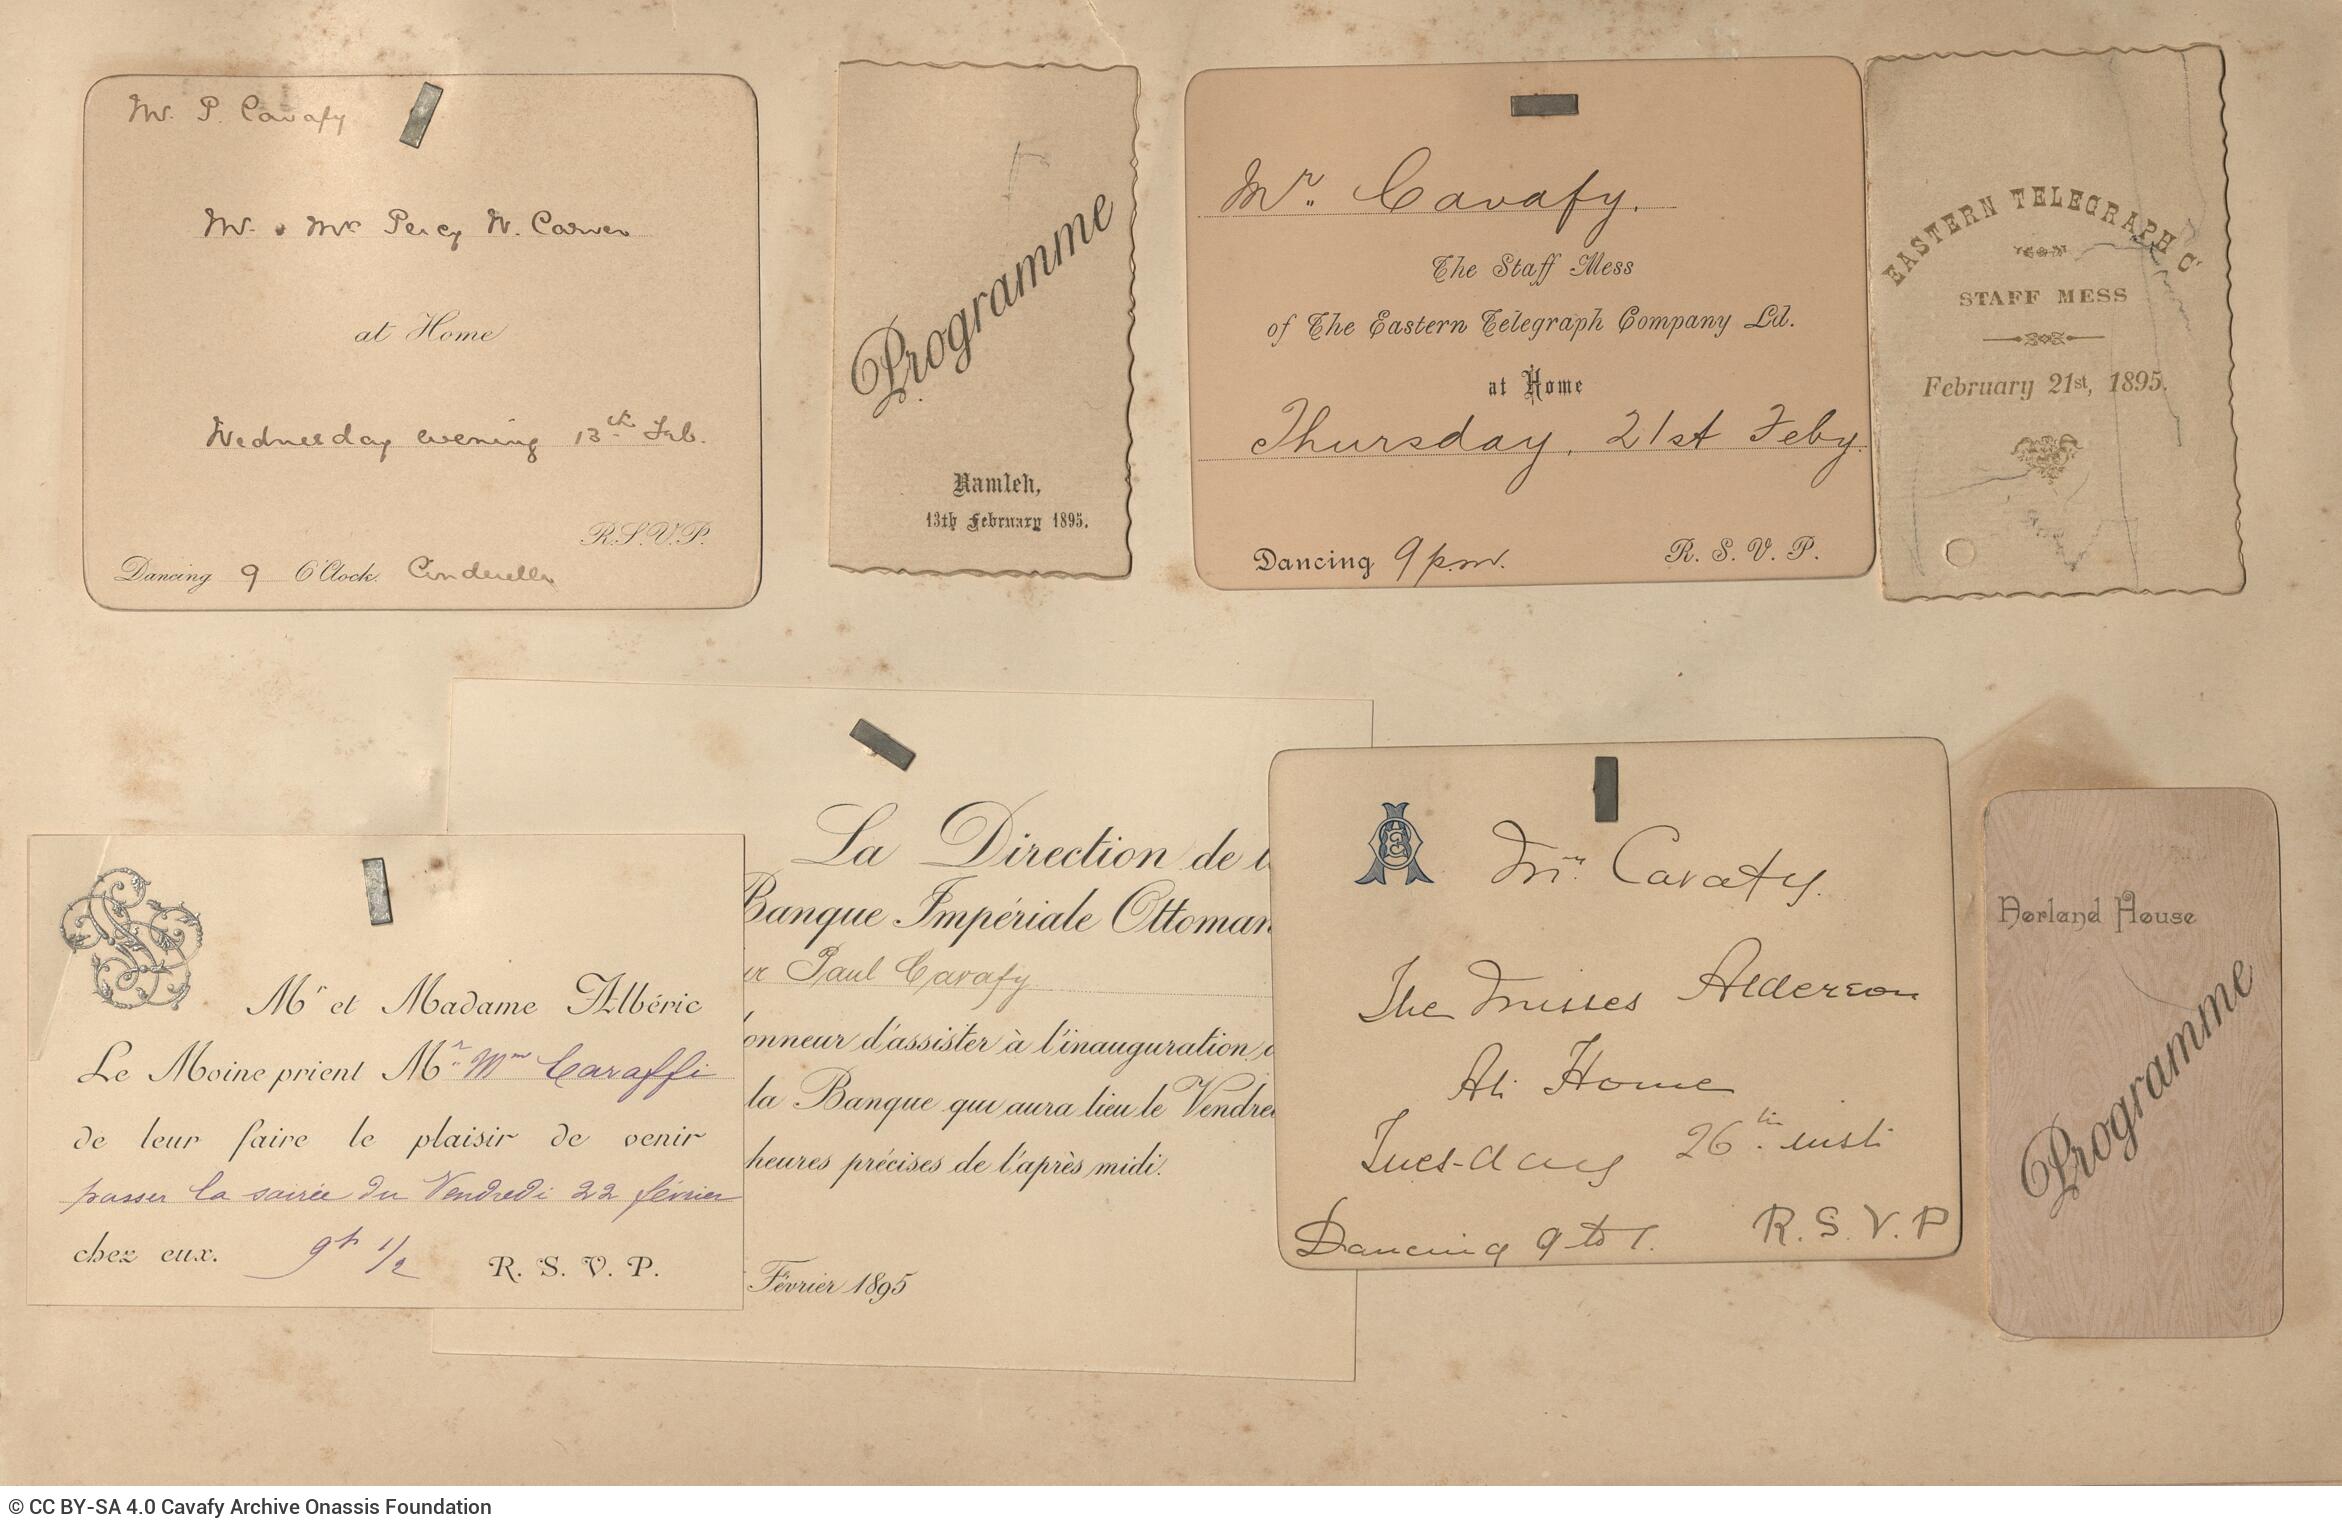 Mr. P. Cavafy
Mr. & Mrs Percy W. Carver
at Home
Wednesday evening 13th Feb.
R.S.V.P.
Dancing 9 O'Clock. Cinderella
Programme
Ramleh,
13th February 1895.
Mr. Cavafy.
The Staff Mess
of The Eastern Telegraph Company Ld.
at Home
Thursday, 21st Feby.
Dancing 9 p.m. R. S. V. P.
EASTERN TELEGRAPH Co
STAFF MESS
February 21st, 1895.
Mr et Madame Albéric
Le Moine prient Mr Mme Caraffi
de leur faire le plaisir de venir
passer la soirée du Vendredi 22 février
chez eux. 9h 1/2 R. S. V. P.
La Direction de l
Banque Impériale Ottoman
ur Paul Cavafy
onneur d'assister à l'inauguration
la Banque qui aura lieu le Vendre
heures précises de l'après midi.
Février 1895
Mr. Cavafy.
The Misses Alderson
At Home
Tuesday 26th inst
Dancing 9 to 1. R. S. V. P
Norland House
Programme
© CC BY-SA 4.0 Cavafy Archive Onassis Foundation